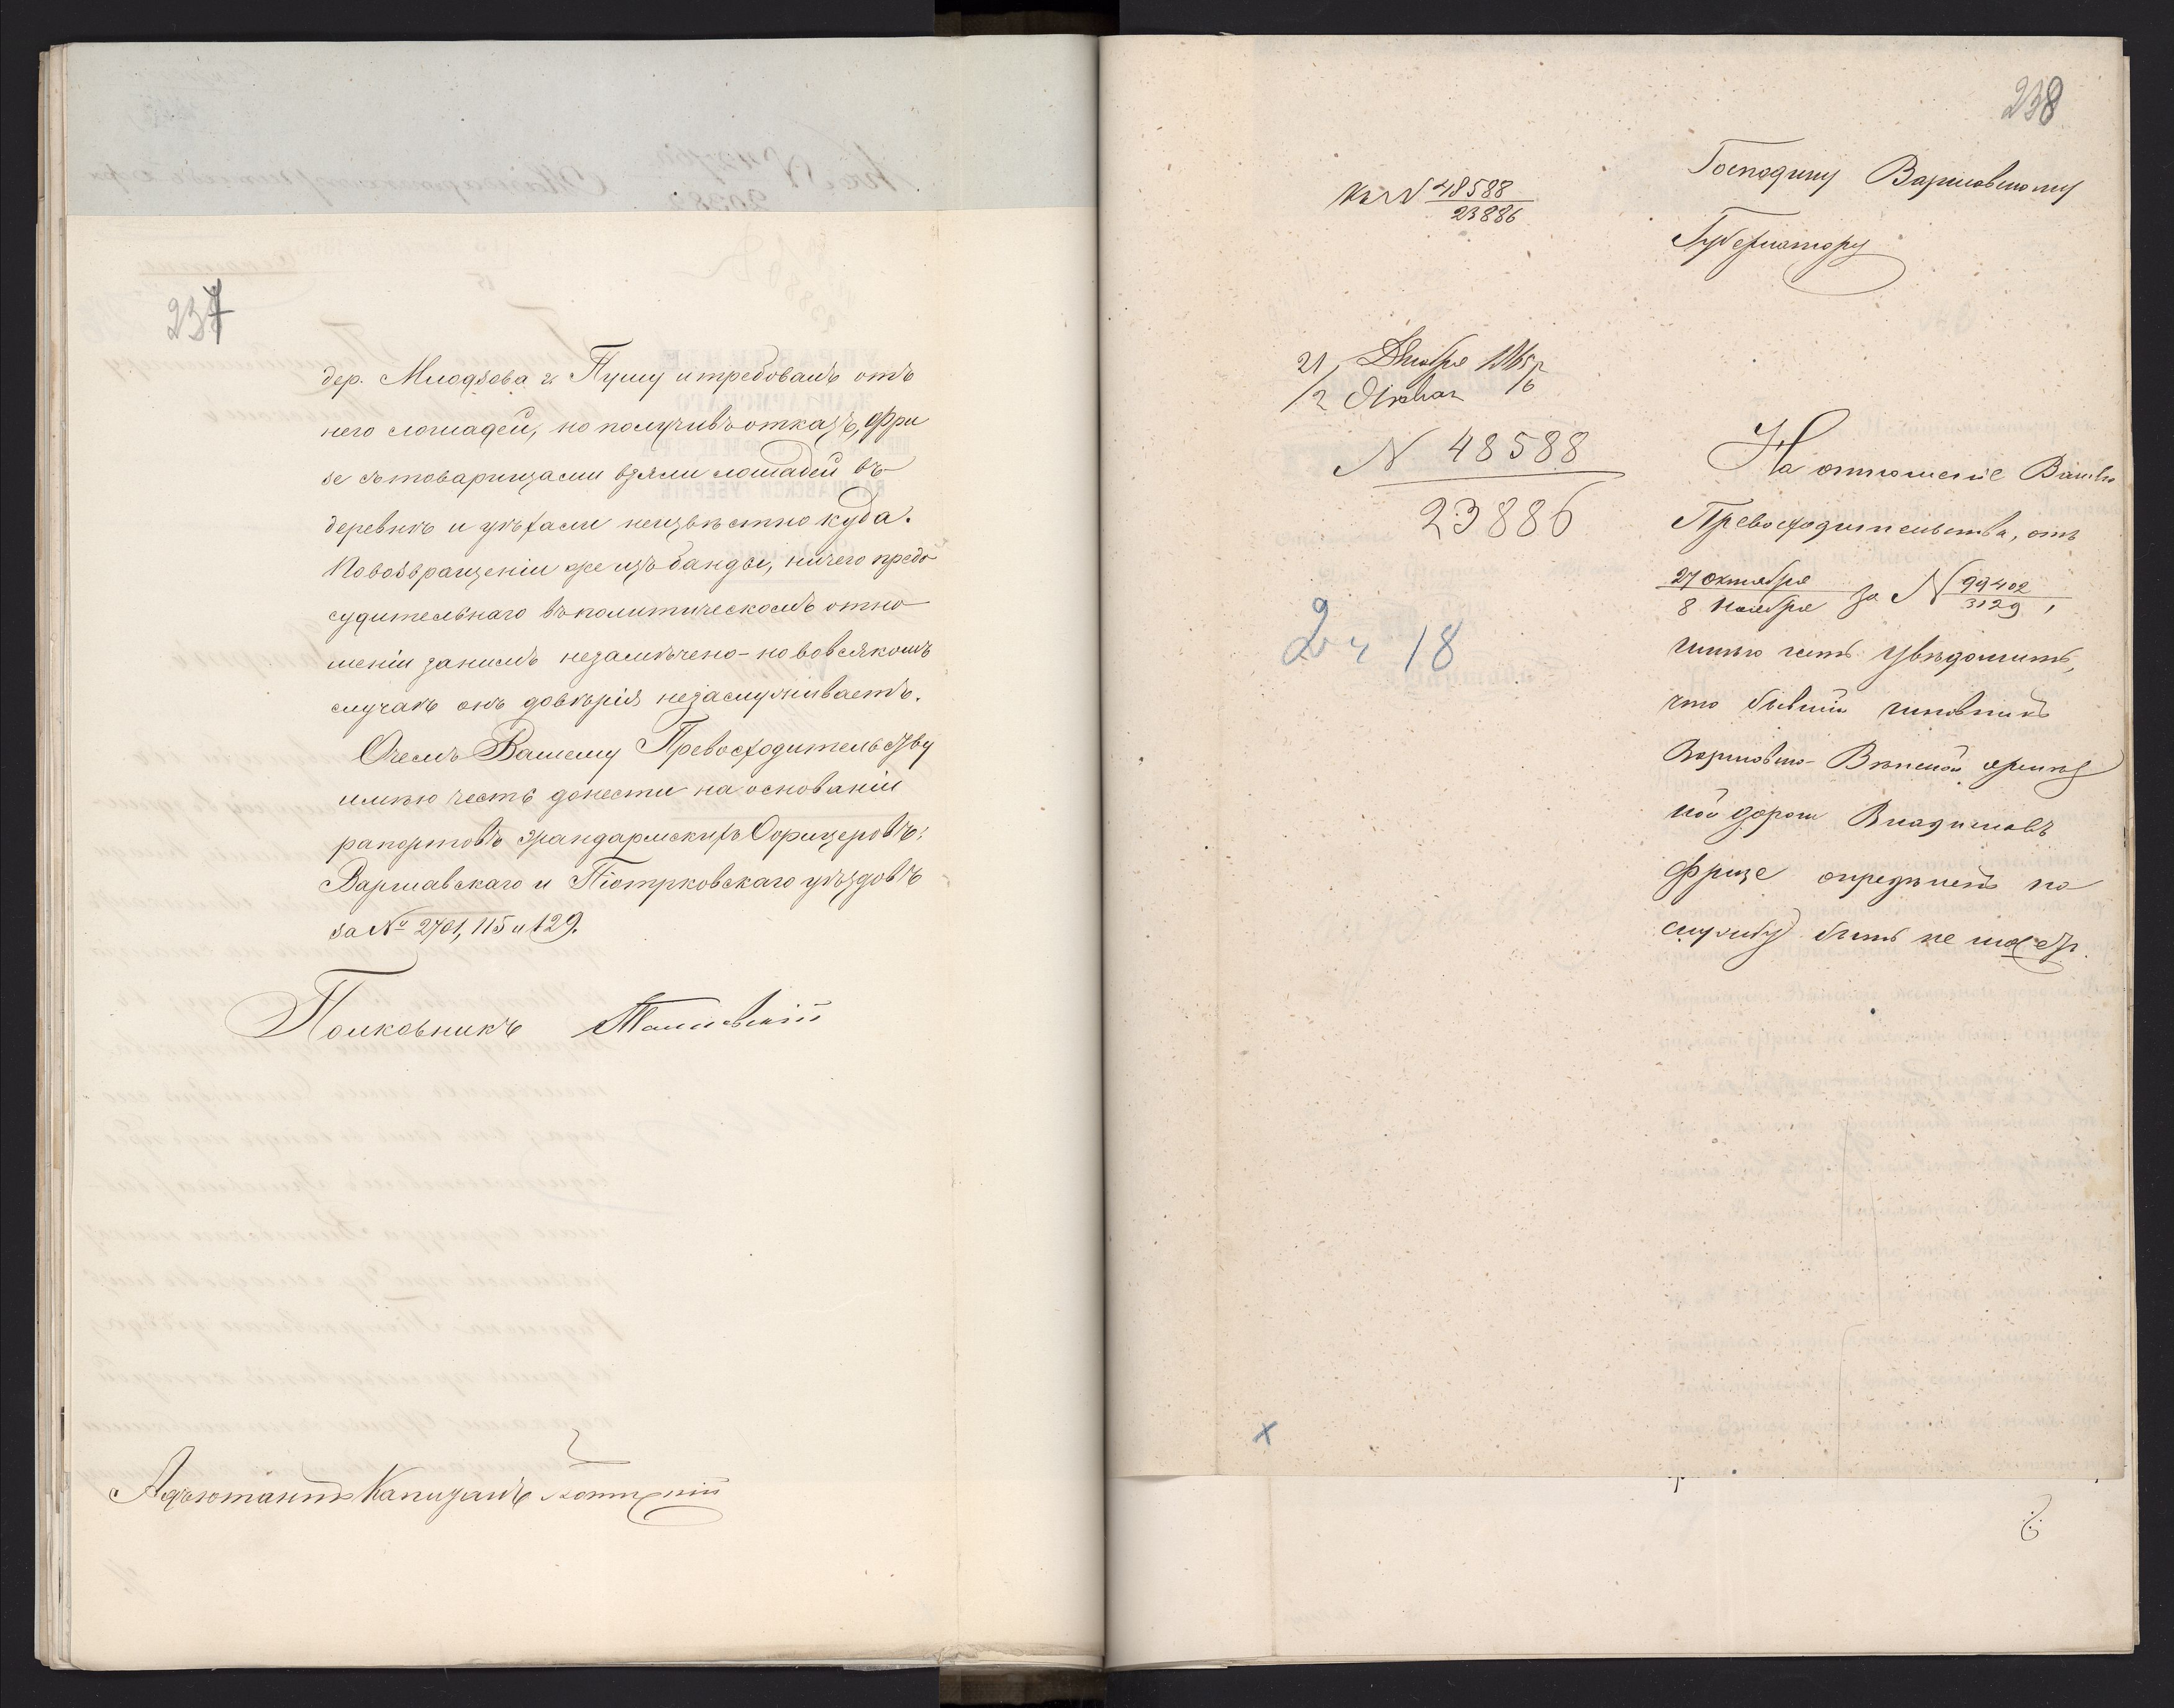 237
дер. Млодзова г. Пушу и требовалъ отъ
него лошадей, но получивъ отказъ, Фри
зе съ товарищами взяли лошадей въ
деревнѣ и уѣхали неизвѣстно куда.
По возвращеніи же изъ банды, ничего предо
судительнаго въ политическомъ отно
шеніи за нимъ незамѣчено - но во всякомъ
случаѣ онъ довѣрія незаслуживаетъ.
О чемъ Вашему Превосходительству
имѣю честь донести на основаніи
рапортовъ Жандармскихъ Офицеровъ:
Варшавскаго и Піотрковскаго уѣздовъ
за № 2701, 115 и 129.
Полковникъ
Адъютантъ Капитанъ
238
Къ N 48588
23886
Господину Варшавскому
Губернатору
21 Декабря 1865
/2 Января /6
N 48588
23886
2 ч 18
На отношеніе Вашего
Превосходительства, отъ
27 Октября
8 Ноября за N 99402
3129,
имѣю честь увѣдомить,
что бывшій чиновникъ
Варшавско-Вѣнской желѣз
ной дороги Владиславъ
Фризе опредѣленъ на
службу быть не можетъ.
x